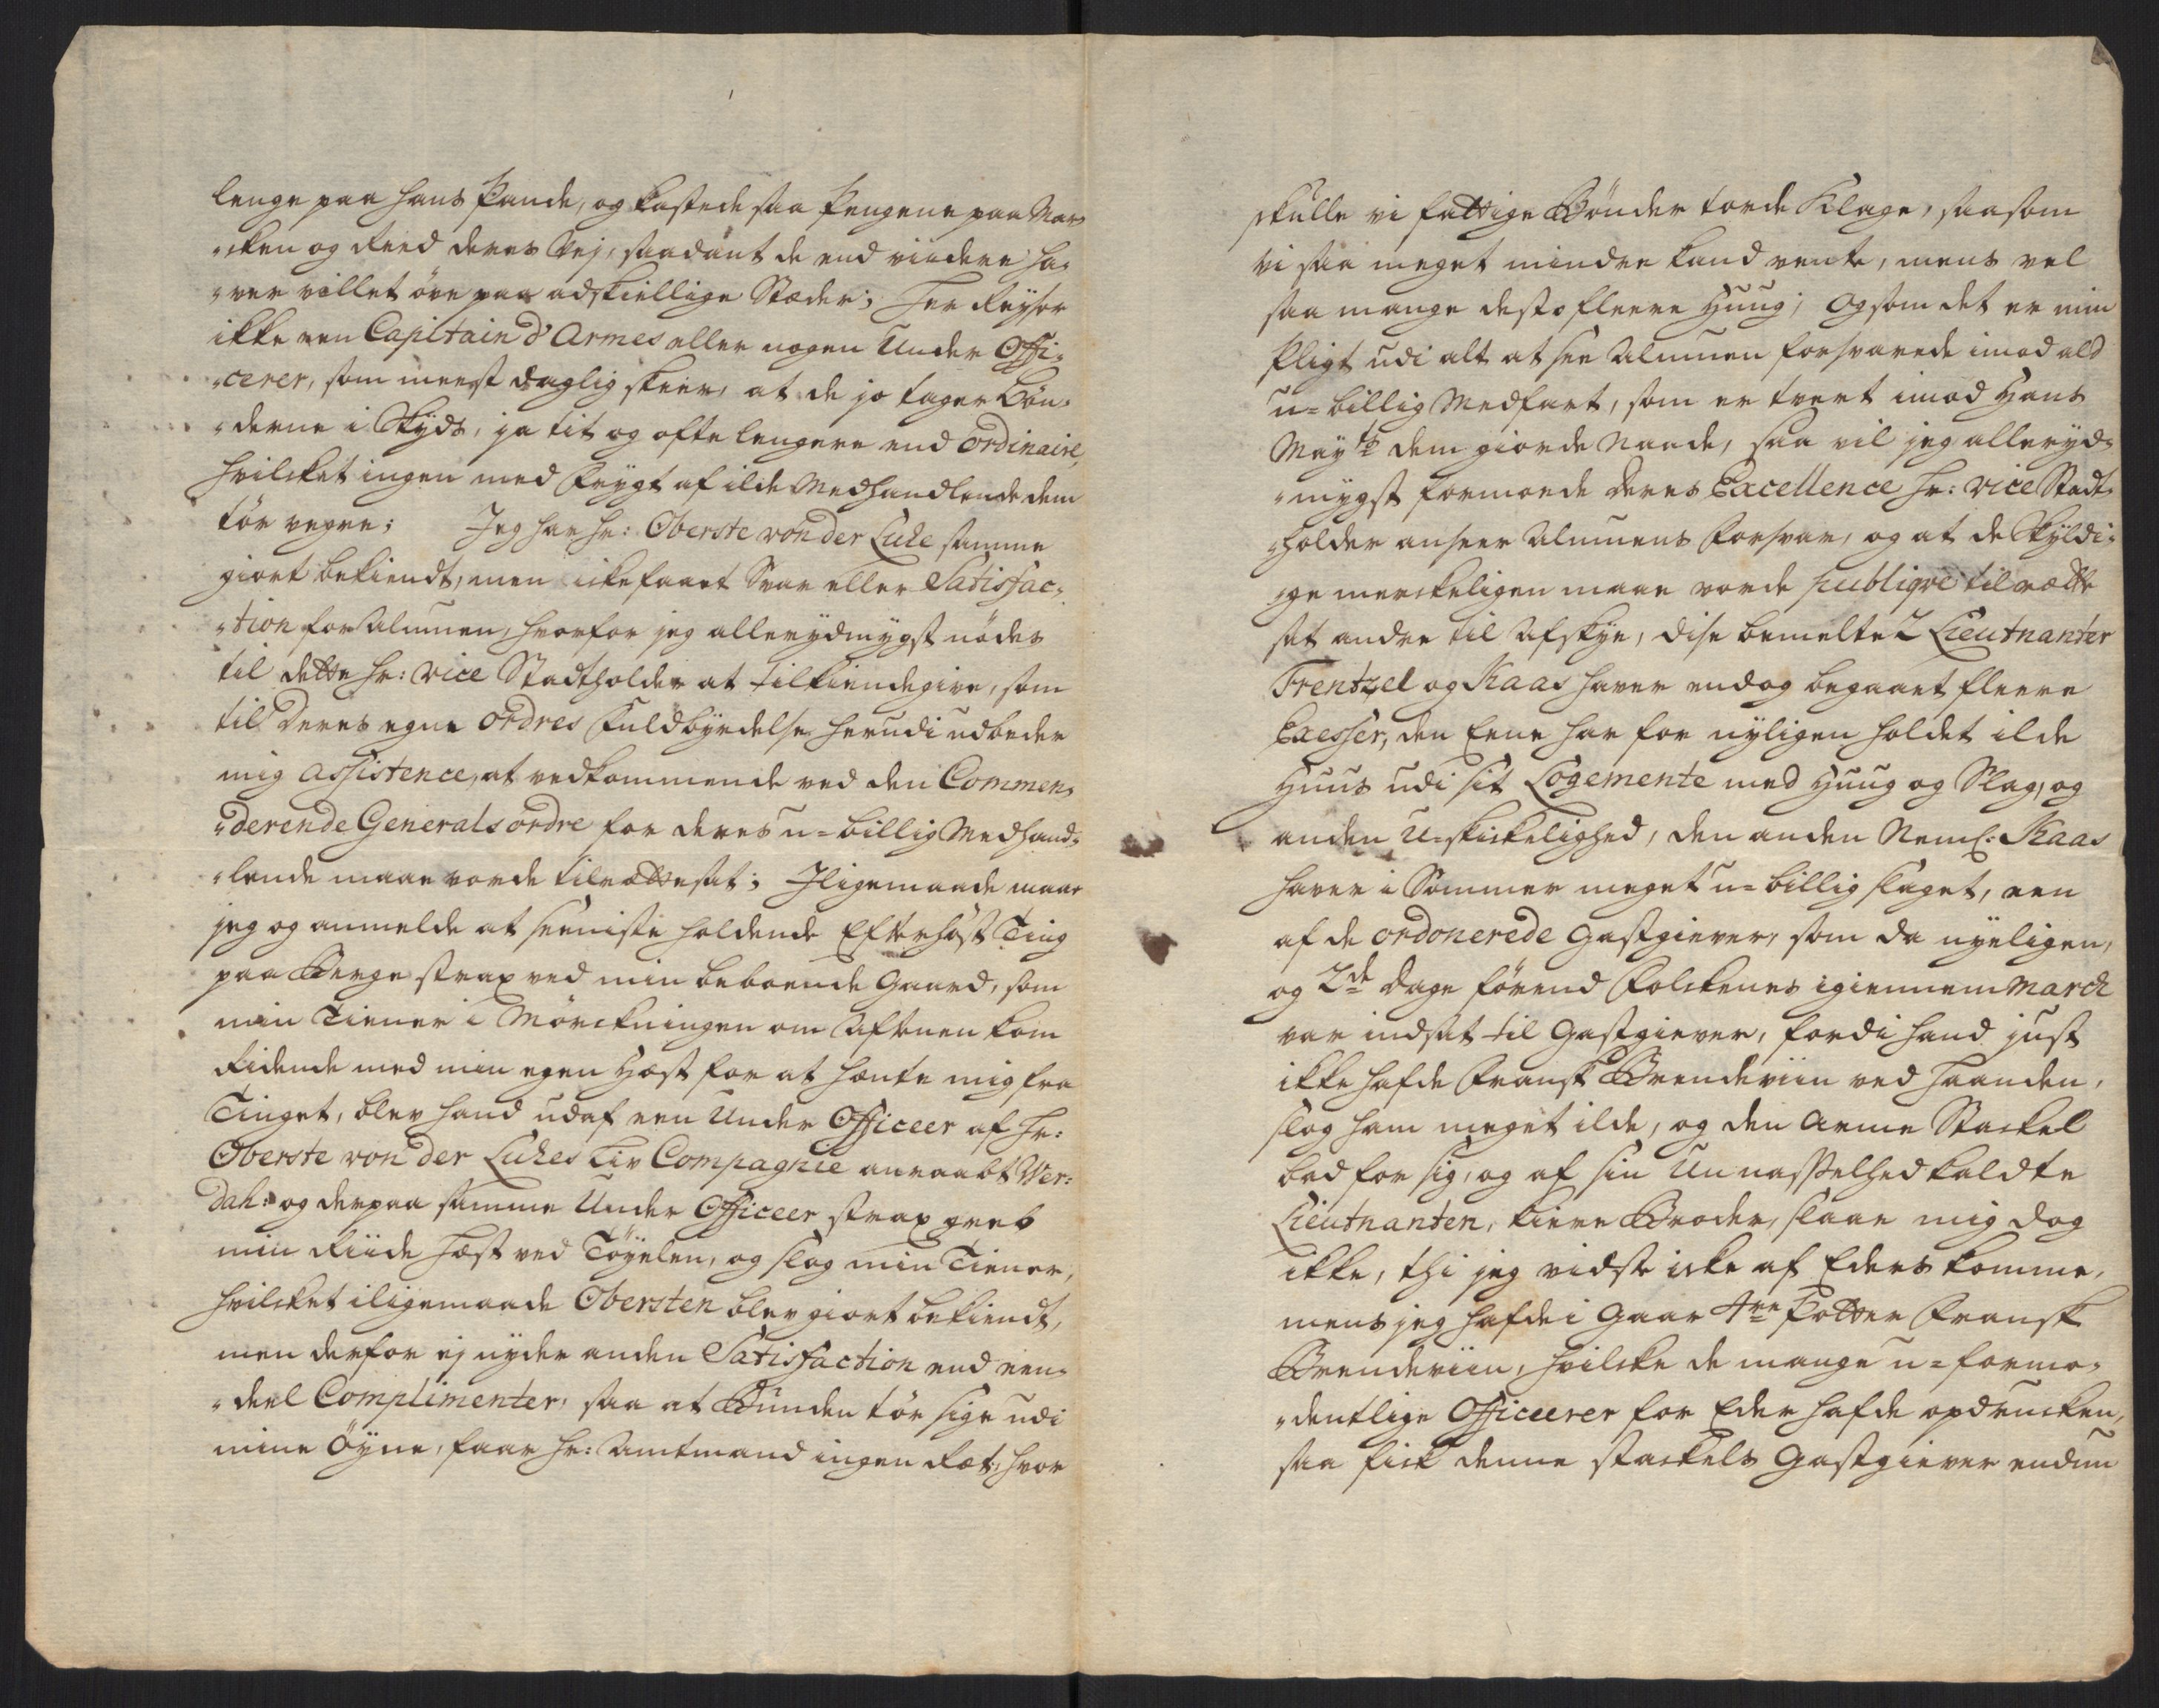 lenge paa hans Pande, og kastede saa Pengene paa Mar¬
„cken og Reed deres Vej, saadant de end viidere ha¬
„ver villet öve paa adskiellige Stæder; Her Reyser
ikke een Capitain d'Armes eller nogen Under Offi¬
„cerer, som meest daglig skeer, at de jo tager Bön¬
„derne i Skyds, ja tit og ofte lengere end ordinaire,
hvilcket ingen med Frygt af ilde Medhandlende dem
tör vegre; Jeg har hr: Oberste von der Lühe samme
giort bekiendt, men icke faaet Svar eller Satisfac¬
„tion for Almuen, hvorfor jeg allerydmygst nödes
til dette hr: Vice Stadtholder at tilkiendegive, som
til Deres egne Ordres Fuldbyrdelse herudi udbeder
mig Assistence, at vedkommende ved den Commen¬
„derende Generals ordre for deres u=billig Medhand¬
„lende maae vorde tilrættesat; Iligemaade maae
jeg og anmelde at seeniste holdende Efterhöst Ting
paa Berge strax ved min beboende Gaard, som
min Tiener i Mörckningen om Aftenen kom
Ridende med min egen Hest for at hente mig fra
Tinget, blev hand udaf een Under Officeer af hr:
Oberste von der Lühes Liv Compagnie anraabt Wer:
dah: og derpaa samme Under Officeer strax greb
min Riide Hest ved Töyelen, og slog min Tiener,
hvilcket iligemaade Obersten blev giort bekiendt,
men derfor ej nyder anden Satisfaction end een¬
„deel Complimenter, saa at Bunden tör sige udi
mine Öyne, faar hr: Amtmand ingen Ret, hvor
skulle vi fattige Bönder torde Klage, saasom
vi saa meget mindre kand vente, mens vel
saa mange desto fleere Hung; Og som det er min
Pligt udi alt at see Almuen forsvarede imod ald
u=billig Medfart, som er tvert imod Hans
Mayts dem giorde Naade, saa vil jeg alleryd¬
„mygst formode Deres Excellence hr: Vice Stadt¬
„holder anseer Almuens Forsvar, og at de Skyldi¬
„ge merckeligen maae vorde publiqve tilrætte
sat andre til Afskye, disse bemelte 2 Lieutnanter
Frentzel og Kaas haver endog begaaet fleere
Exesser, den Eene har for nyligen holdet ilde
Huus udi sit Logemente med Huug og Slag, og
anden U=skickelighed, den anden Neml: Kaas
haver i Sommer meget u=billig slaget, een
af de ordonerede Gastgiever, som da nyeligen,
og 2de dage förend Folckenes igiennem March
var indsat til Gastgiever, fordi hand just
ikke hafde Fransk Brendeviin ved Haanden,
slog ham meget ilde, og den Arme Stackel
bad for sig, og af sin Unnasselhed kaldte
Lieutnanten, kiere Broder, slaae mig dog
ikke, thi jeg vidste icke af Eders komme,
mens jeg hafde i Gaar 4re Potter Fransk
Brendeviin, hvilcke de mange u=formo¬
„dentlige Officeerer for Eder hafde opdrucken,
saa fick denne stackels Gastgiever endnu